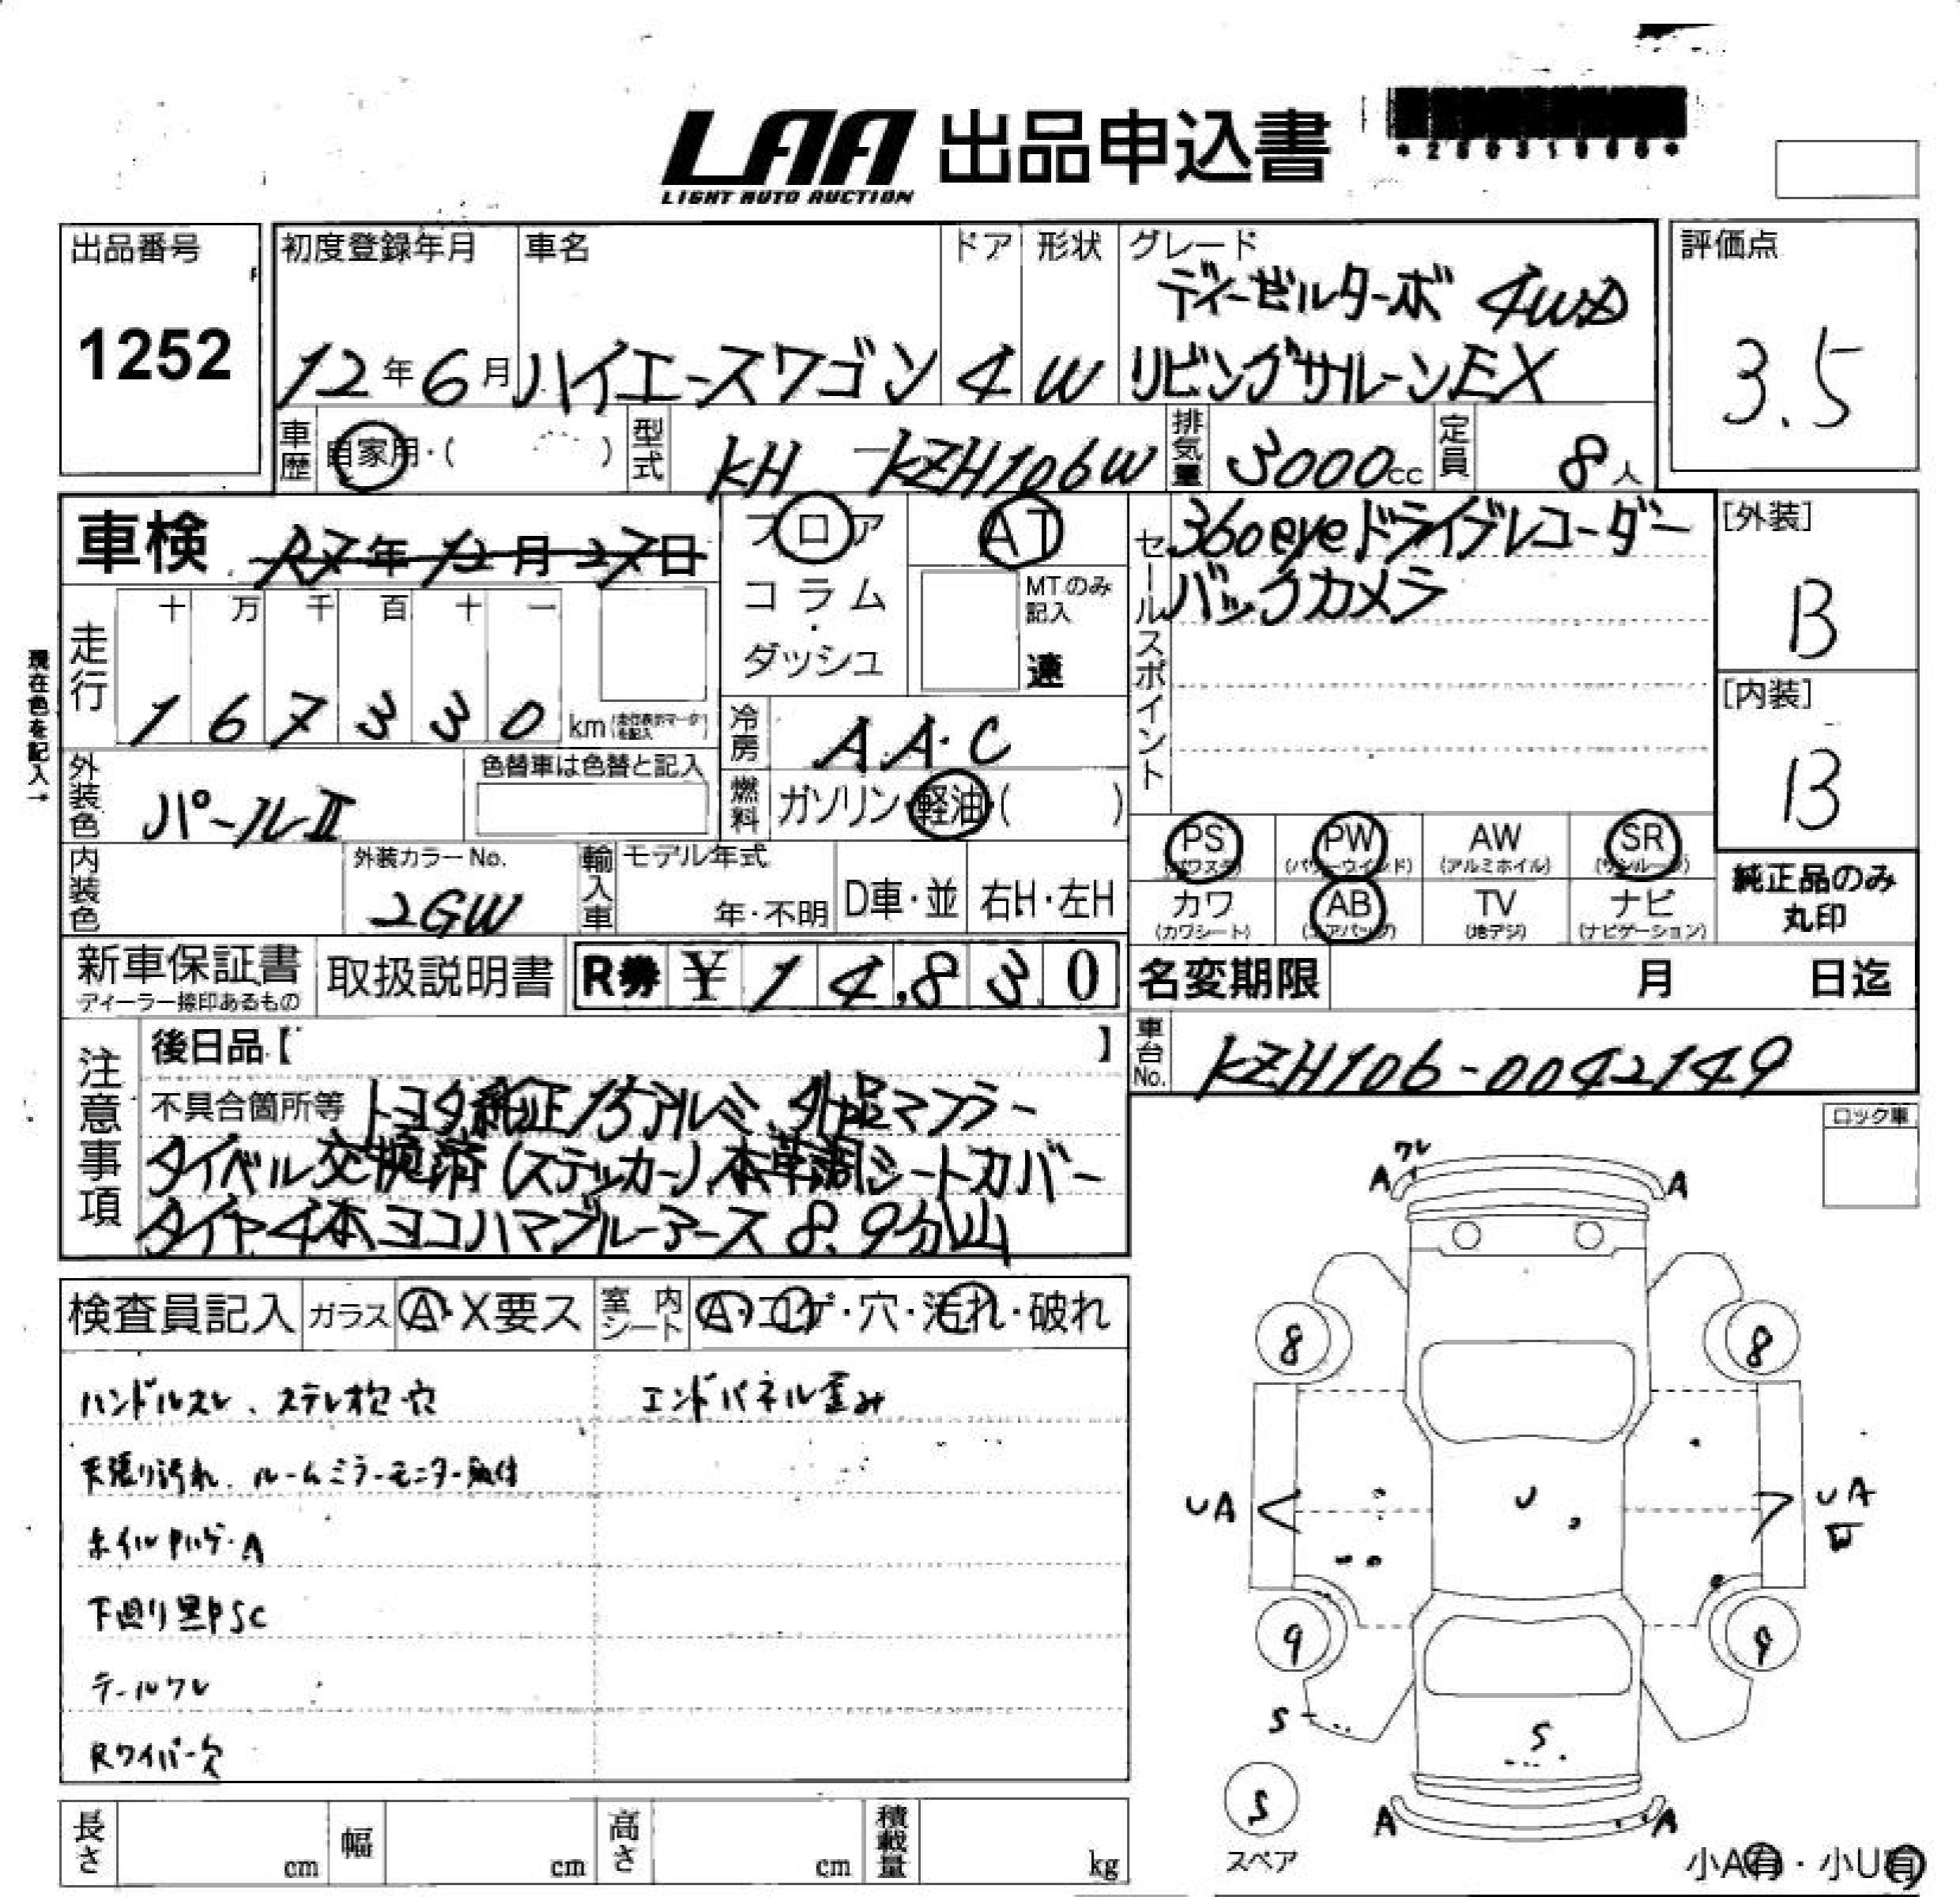 LAA 出品申込書
LIGHT AUTO AUCTION
出品番号
1252
初度登録年月
12年6月
車名
ハイエースワゴン
ドア
4
形状
W
グレード
ディーゼルターボ 4WD
リビングサルーンEX
評価点
3.5
車歴
自家用・( )
型式
KH-KZH106W
排気量
3000cc
定員
8人
車検 R7年12月27日
フロア
コラム
ダッシュ
AT
MTのみ
記入
速
セールスポイント
360eyeドライブレコーダー
バックカメラ
[外装]
B
[内装]
B
現在色を記入→
走行
十 万 千 百 十 一
1 6 7 3 3 0 km
冷房
A.A.C
外装色
パールII
色替車は色替と記入
燃料
ガソリン・軽油・( )
内装色
外装カラーNo.
2GW
輸入車
モデル年式
年・不明
D車・並
右H・左H
PS
(パワステ)
PW
(パワーウインド)
AW
(アルミホイル)
SR
(サンルーフ)
カワ
(カワシート)
AB
(エアバッグ)
TV
(地デジ)
ナビ
(ナビゲーション)
純正品のみ
丸印
新車保証書
ディーラー捺印あるもの
取扱説明書
R券 ¥ 14,830
名変期限 月 日迄
車台No.
KZH106-0042149
注意事項
後日品【 】
不具合箇所等 トヨタ純正15アルミ、外品マフラー
タイベル交換済(ステッカー)、本革調シートカバー
タイヤ4本ヨコハマブルーアース 8.9分山
ロック車
検査員記入
ガラス
A・X要ス
室内シート
A・コゲ・穴・汚れ・破れ
ハンドルスレ、ステレオ欠・穴
エンドパネル歪み
天張り汚れ、ルームミラーモニター取付
ホイルキハゲ・A
下廻り黒PSC
テールワレ
Rワイパー欠
ワレ
A
A
8
8
UA
U
UA
9
9
S
S
S
スペア
A
A
小A有・小U有
長さ cm
幅 cm
高さ cm
積載量 kg